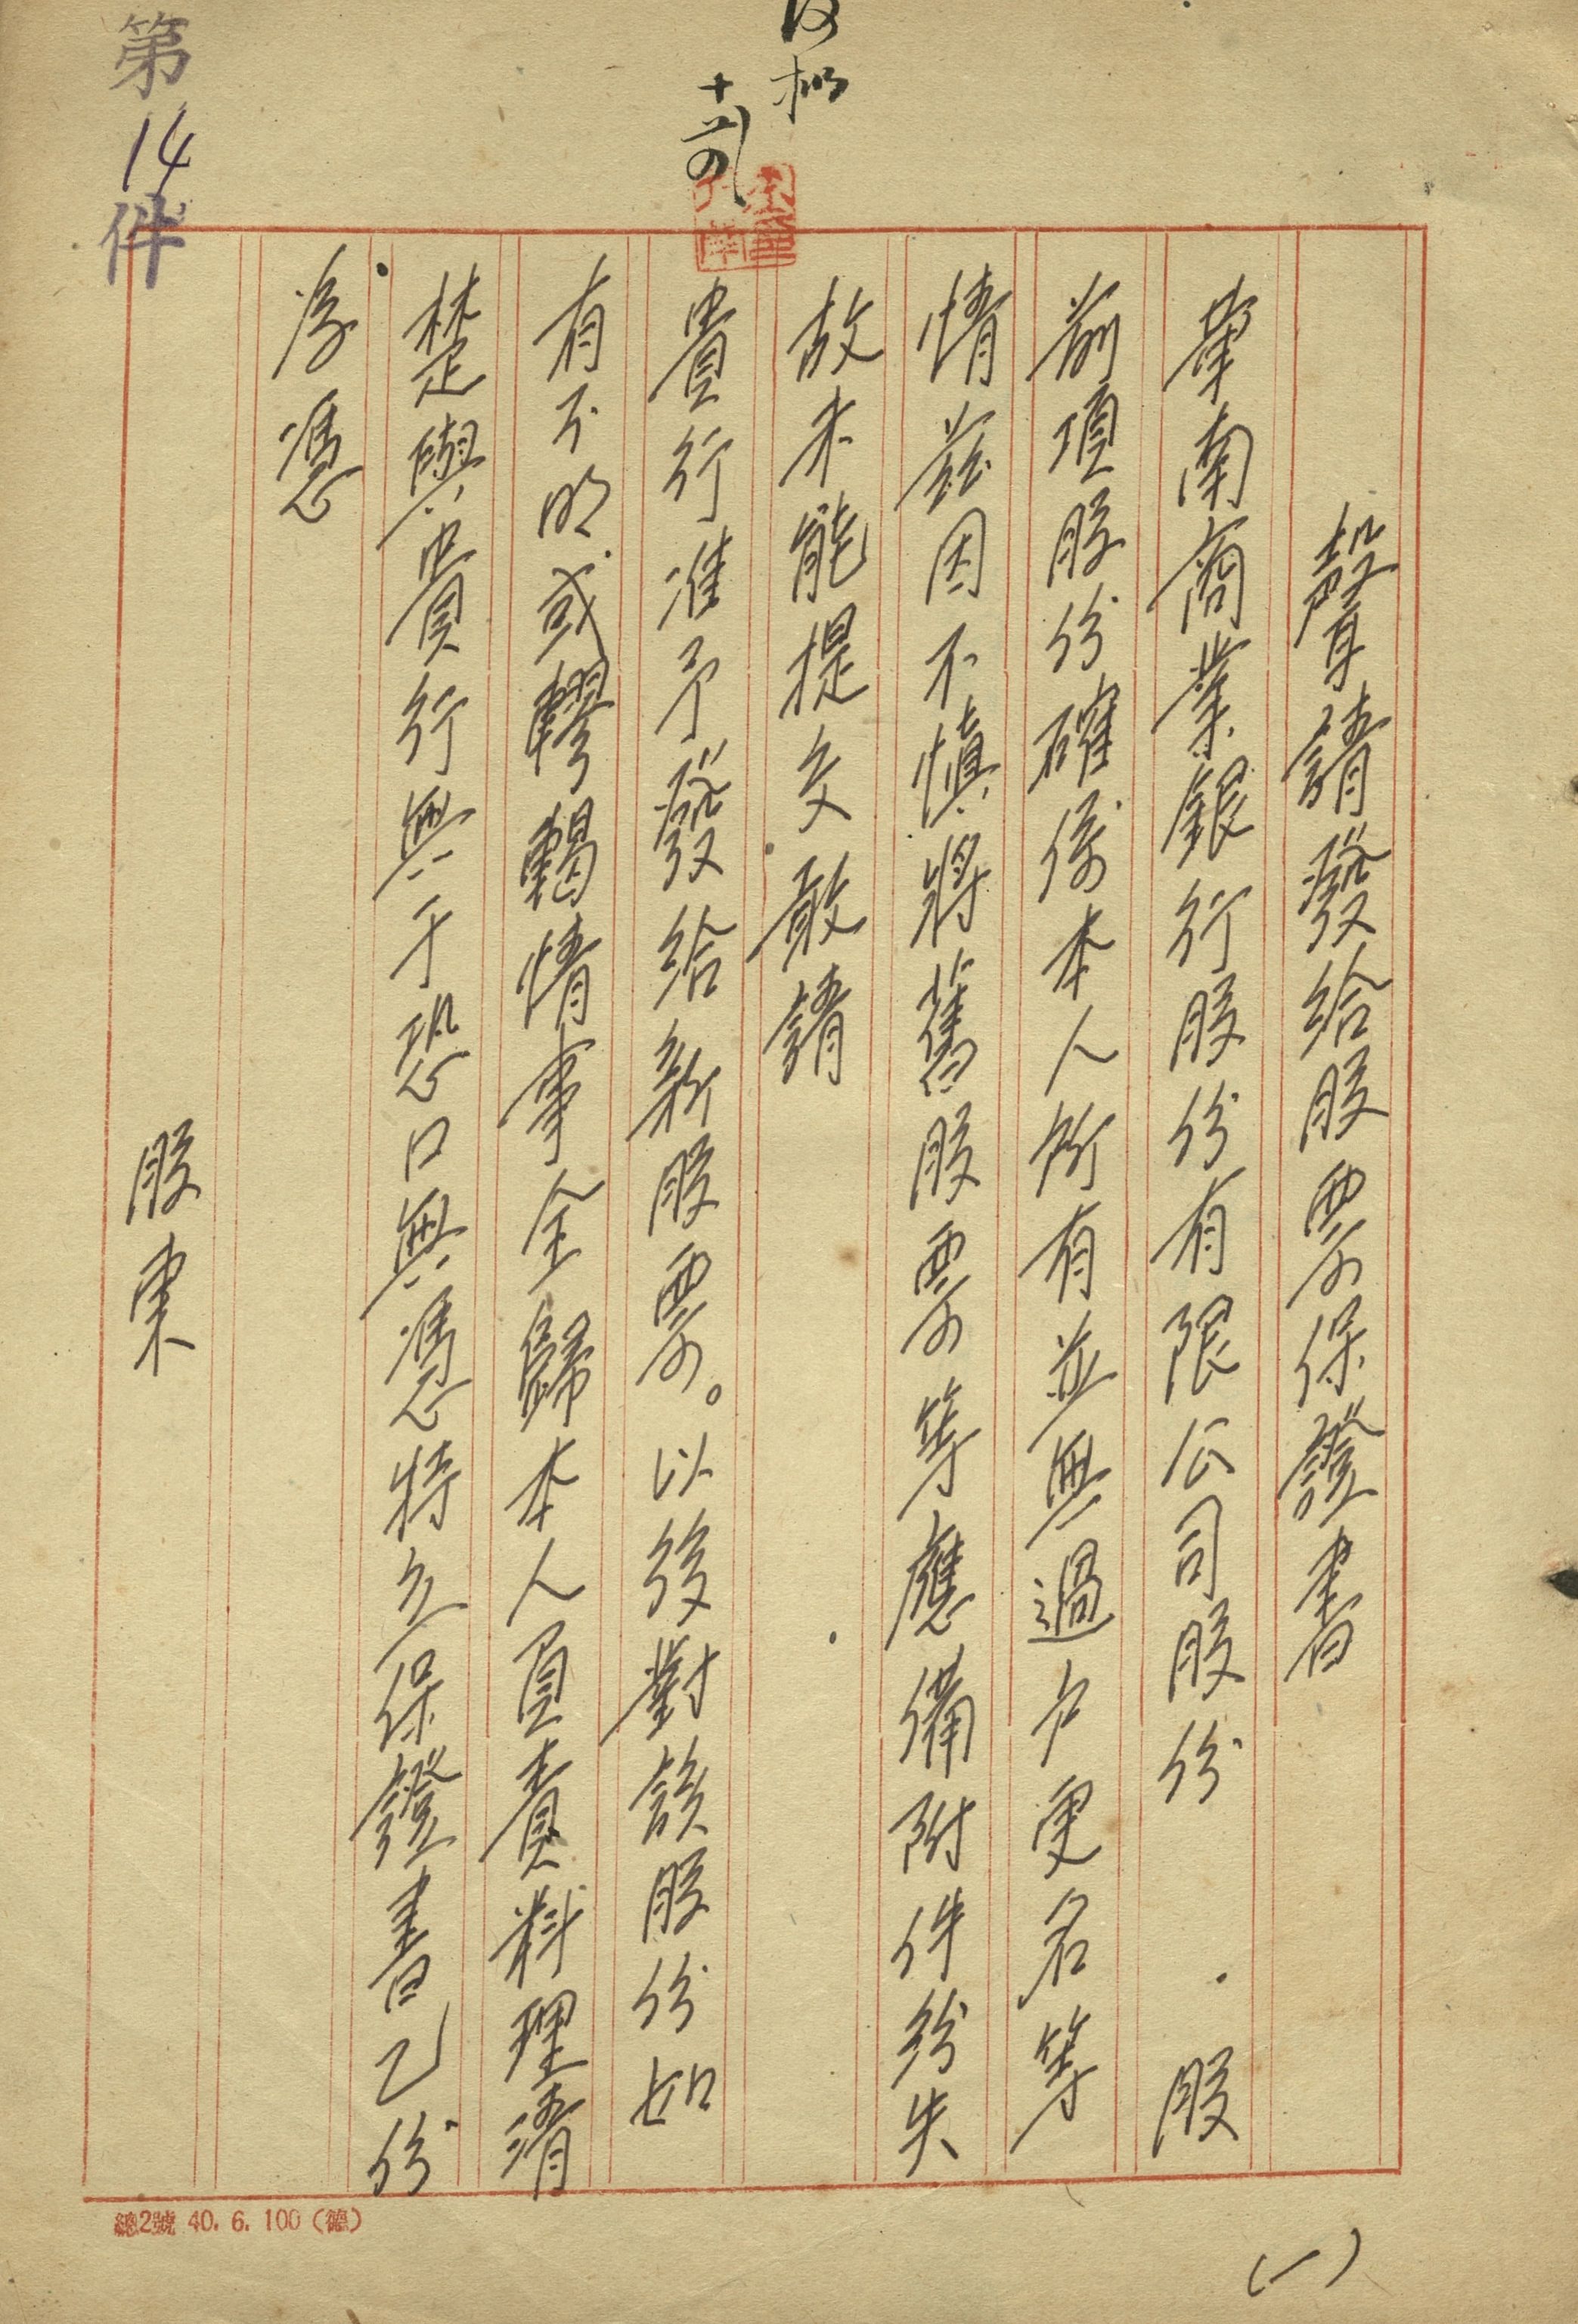 第14件
聲請發給股票保證書
華南商業銀行股份有限公司股份　　股
前項股份確係本人所有並無過戶更名等
情茲因不慎將舊股票等應備附件紛失
故未能提交敬請
貴行准予發給新股票。以後對該股份如
有不明或轇轕情事全歸本人負責料理清
楚與貴行無干恐口無憑特立保證書乙份
為憑
股東
總2號 40. 6. 100 (德)
(一)